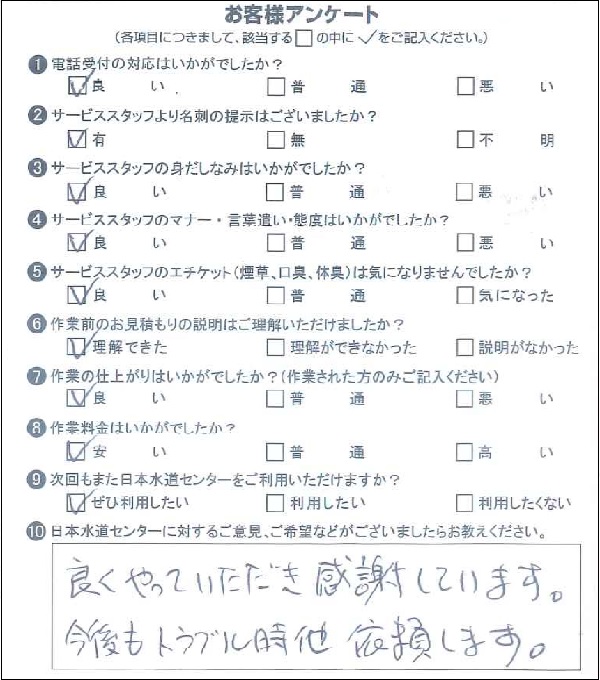 お客様アンケート
(各項目につきまして、該当する□の中に✓をご記入ください。)
❶電話受付の対応はいかがでしたか?
☑良い □普通 □悪い
❷サービススタッフより名刺の提示はございましたか?
☑有 □無 □不明
❸サービススタッフの身だしなみはいかがでしたか?
☑良い □普通 □悪い
❹サービススタッフのマナー・言葉遣い・態度はいかがでしたか?
☑良い □普通 □悪い
❺サービススタッフのエチケット(煙草、口臭、体臭)は気になりませんでしたか?
☑良い □普通 □気になった
❻作業前のお見積もりの説明はご理解いただけましたか?
☑理解できた □理解ができなかった □説明がなかった
❼作業の仕上がりはいかがでしたか?(作業された方のみご記入ください)
☑良い □普通 □悪い
❽作業料金はいかがでしたか?
☑安い □普通 □高い
❾次回もまた日本水道センターをご利用いただけますか?
☑ぜひ利用したい □利用したい □利用したくない
❿日本水道センターに対するご意見、ご希望などがございましたらお教えください。
良くやっていただき感謝しています。
今後もトラブル時他 依頼します。